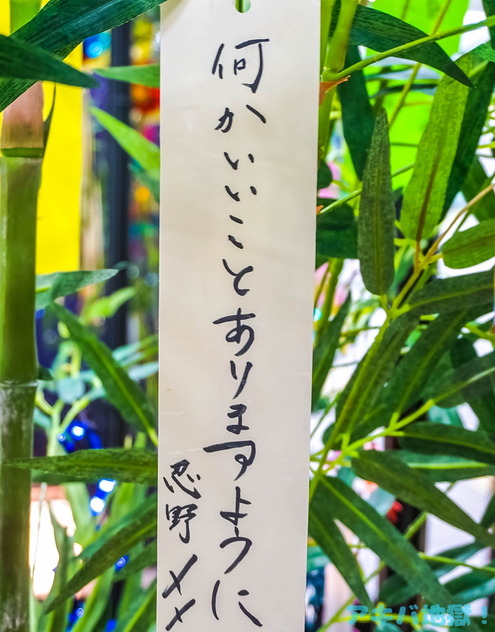 何かいいことありますように
忍野メメ
アキバ地獄！